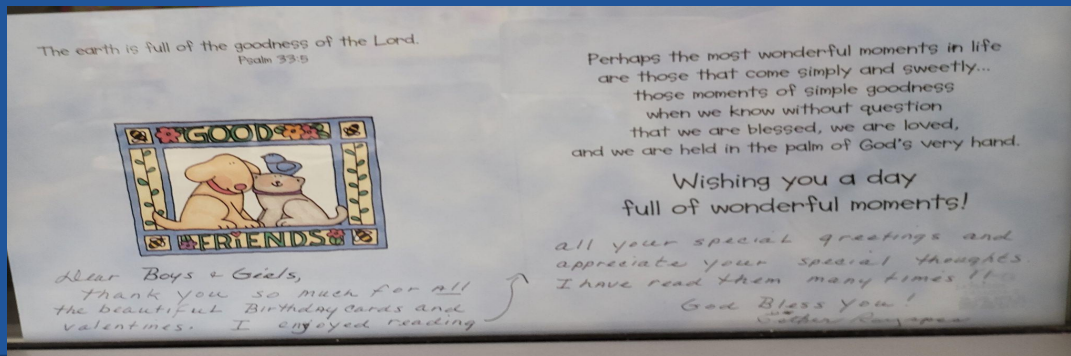 The earth is full of the goodness of the Lord.
Psalm 33:5
GOOD
FRiENDS
Dear Boys & Girls,
Thank you so much for All
the beautiful Birthday cards and
valentines. I enjoyed reading
Perhaps the most wonderful moments in life
are those that come simply and sweetly...
those moments of simple goodness
when we know without question
that we are blessed, we are loved,
and we are held in the palm of God's very hand.
Wishing you a day
full of wonderful moments!
all your special greetings and
appreciate your special thoughts.
I have read them many times!!
God Bless you!